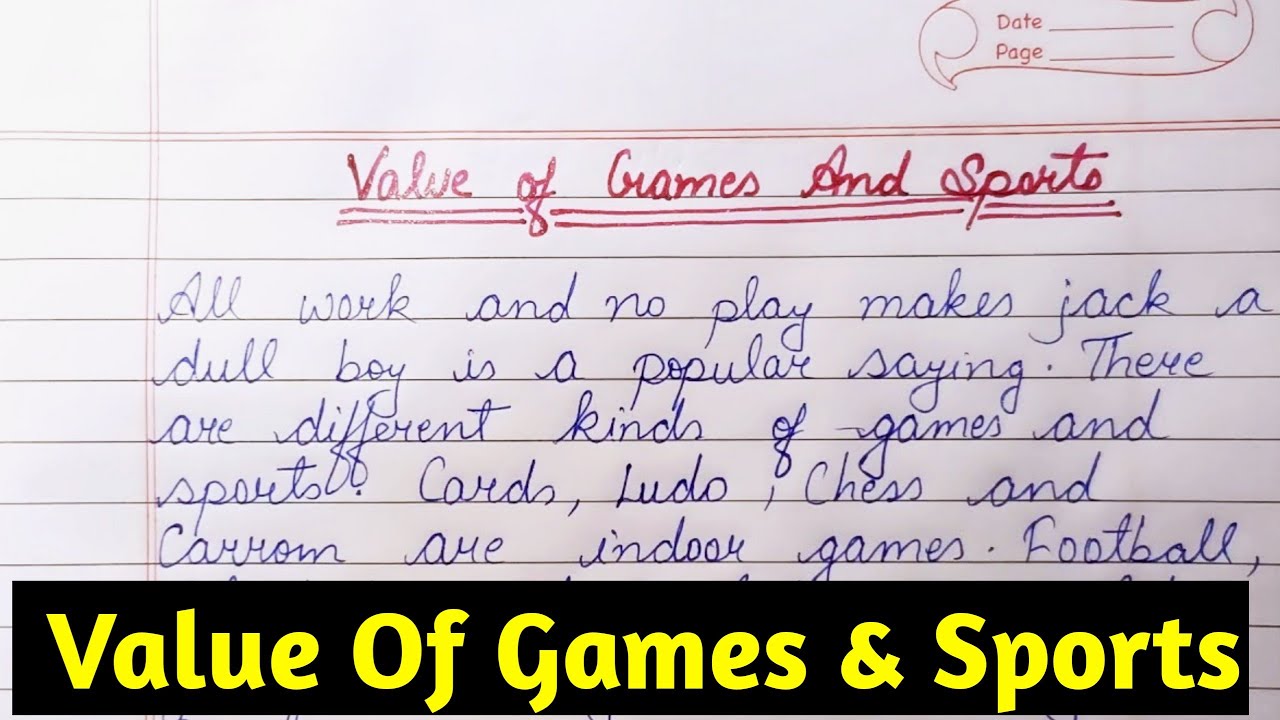 Date
Page
Value of Games And Sports
All work and no play makes jack a
dull boy is a popular saying. There
are different kinds of games and
sports. Cards, Ludo, Chess and
Carrom are indoor games. Football,
Value Of Games & Sports